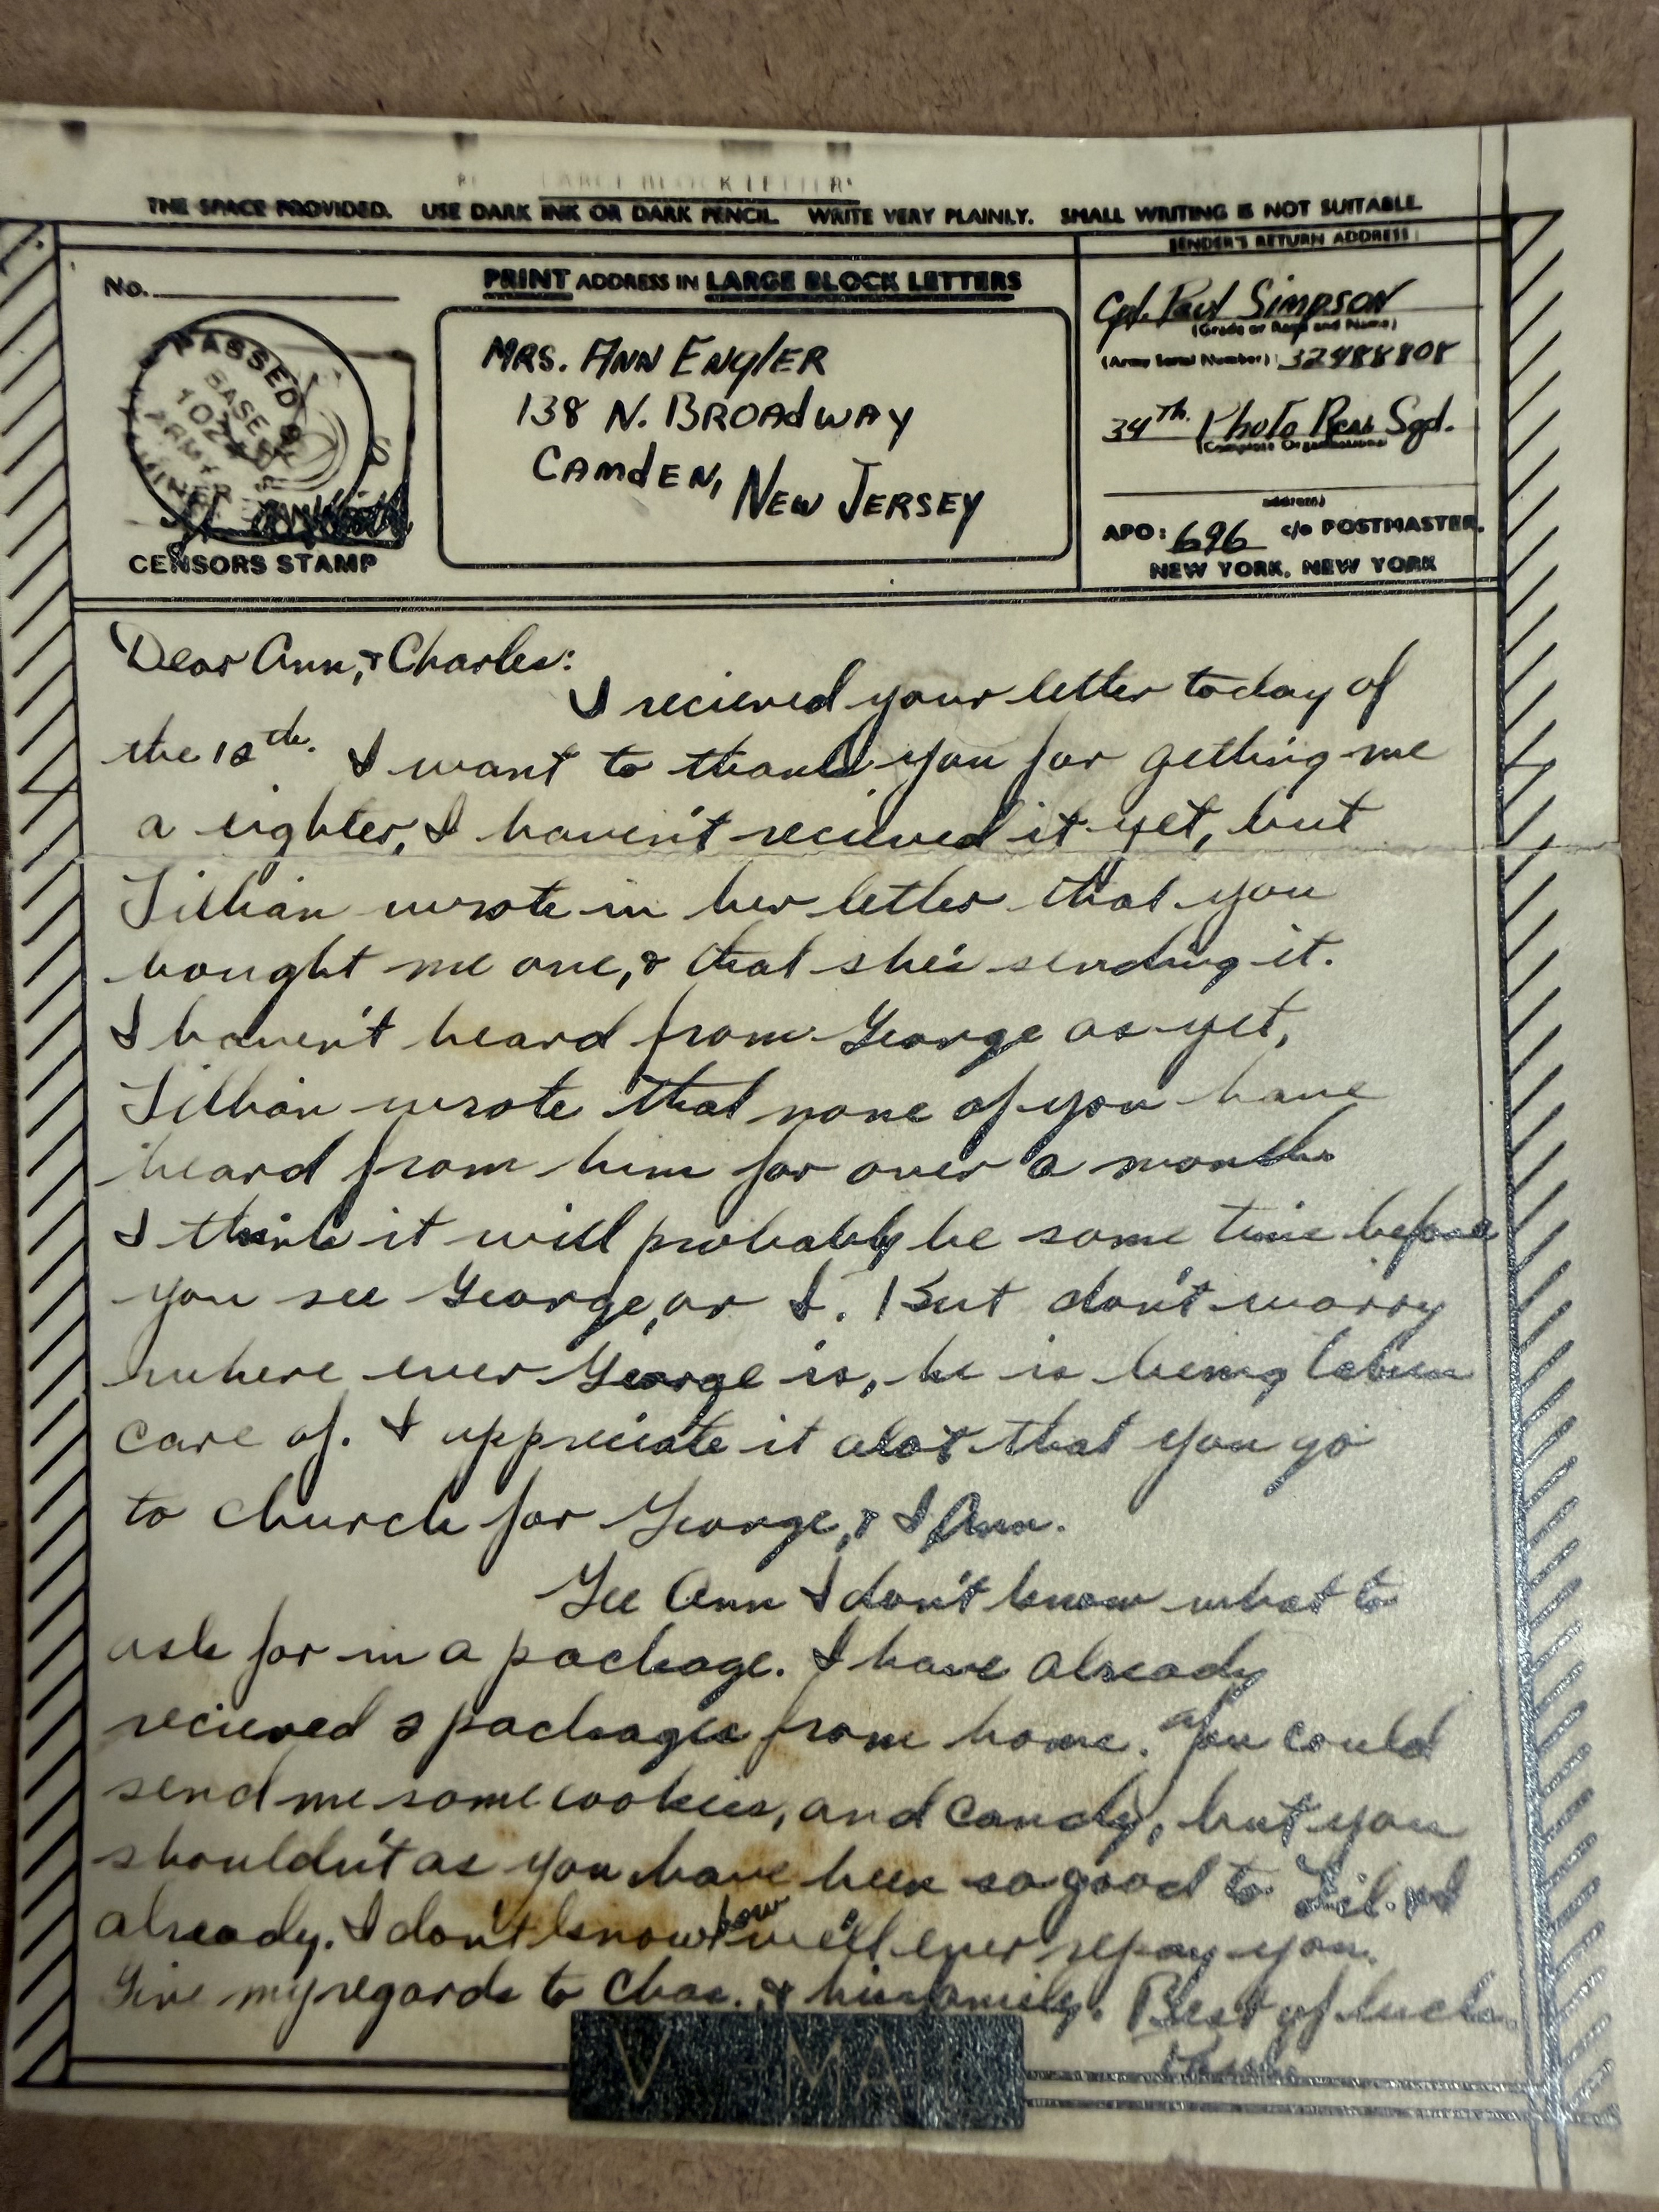 LARGE BLOCK LETTERS
THE SPACE PROVIDED. USE DARK INK OR DARK PENCIL. WRITE VERY PLAINLY. SMALL WRITING IS NOT SUITABLE.
No.
PRINT ADDRESS IN LARGE BLOCK LETTERS
SENDER'S RETURN ADDRESS
PASSED BY
BASE
ARMY
CENSORS STAMP
MRS. ANN ENGLER
138 N. BROADWAY
CAMDEN, NEW JERSEY
Cpl. Paul SIMPSON
(Grade or Rank and Name)
(Army Serial Number) 32488808
34th. Photo Rcn Sqd.
(Complete Organization)
address)
APO: 696 c/o POSTMASTER,
NEW YORK, NEW YORK
Dear Ann, & Charles:
I recieved your letter today of
the th. I want to thank you for getting me
a lighter, I haven't recieved it yet, but
Lillian wrote in her letter that you
bought me one, & that she's sending it.
I haven't heard from George as yet,
Lillian wrote that none of you have
heard from him for over a month
I think it will probably be some time before
you see George, or I. But don't worry
where ever George is, he is being taken
care of. I appreciate it alot that you go
to church for George, & I Ann.
Gee Ann I don't know what to
ask for in a package. I have already
recieved packages from home. You could
send me some cookies, and candy, but you
shouldn't as you have been so good to Lil. & I
already. I don't know how we'll ever repay you.
Give my regards to Chas. & his family. Best of luck.
V-MAIL